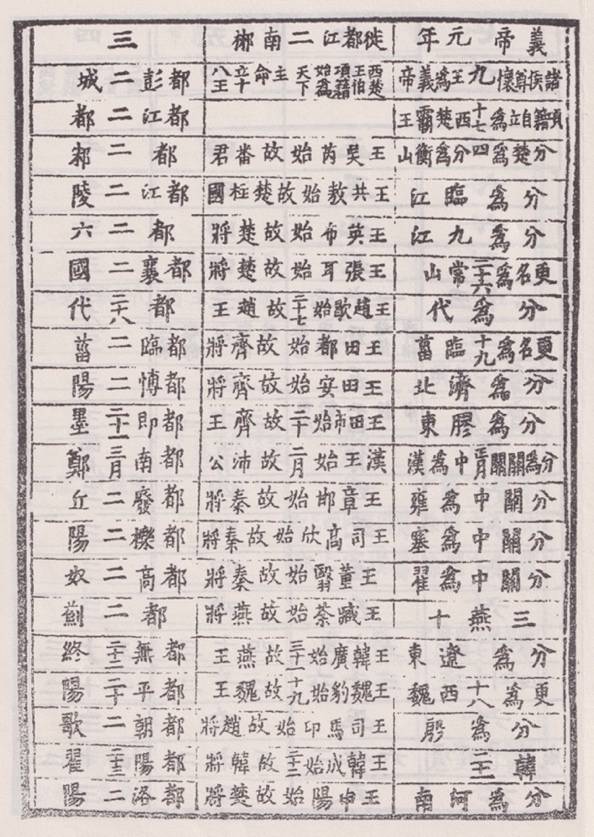 義帝元年 徙都江二南郴 三
諸侯尊懷九王為義帝 西楚王伯項籍始為天下主命立十八王 都彭二城
項籍自立為十七西楚霸王 都江二都
分楚為四分為衡山 王吳芮始故番君 都二邾
分為臨江 王共敖始故楚柱國 都江二陵
分為九江 王英布始故楚將 都二六
更名為二十六常山 王張耳始故楚將 都襄二國
分為代 王趙歇始二十七故趙王 都二十八代
更名為十九臨菑 王田都始故齊將 都臨二菑
分為濟北 王田安始故齊將 都博二陽
分為膠東 王田市始二十故齊王 都即二十一墨
分為關關正月中為漢 漢王始二月故沛公 都南三月鄭
分關中為雍 王章邯始故秦將 都廢二丘
分關中為塞 王司馬欣始故秦將 都櫟二陽
分關中為翟 王董翳始故秦將 都高二奴
三燕十 王臧荼始故燕將 都二薊
分為遼東 王韓廣始三十一故燕王 都無三十二終
更為十八西魏 王魏豹始十九故魏王 都平二十陽
分為殷 王司馬卬始故趙將 都朝二歌
韓二十一 王韓成始二十二故韓將 都陽二十三翟
分為河南 王申陽始故楚將 都洛二陽